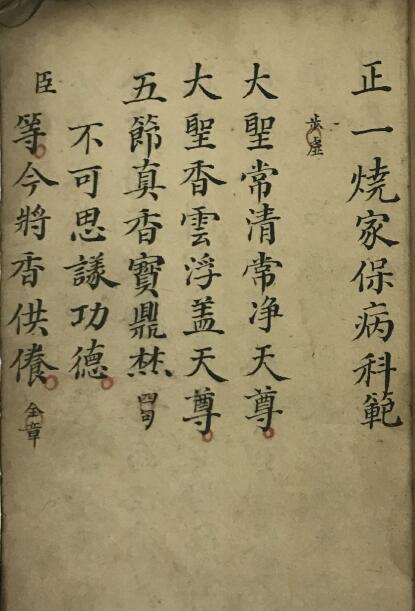 正一烧家保病科範
步虛
大聖常清常净天尊
大聖香雲浮盖天尊
五節真香寳鼎焚 四句
不可思議功德
臣等今將香供養 全章